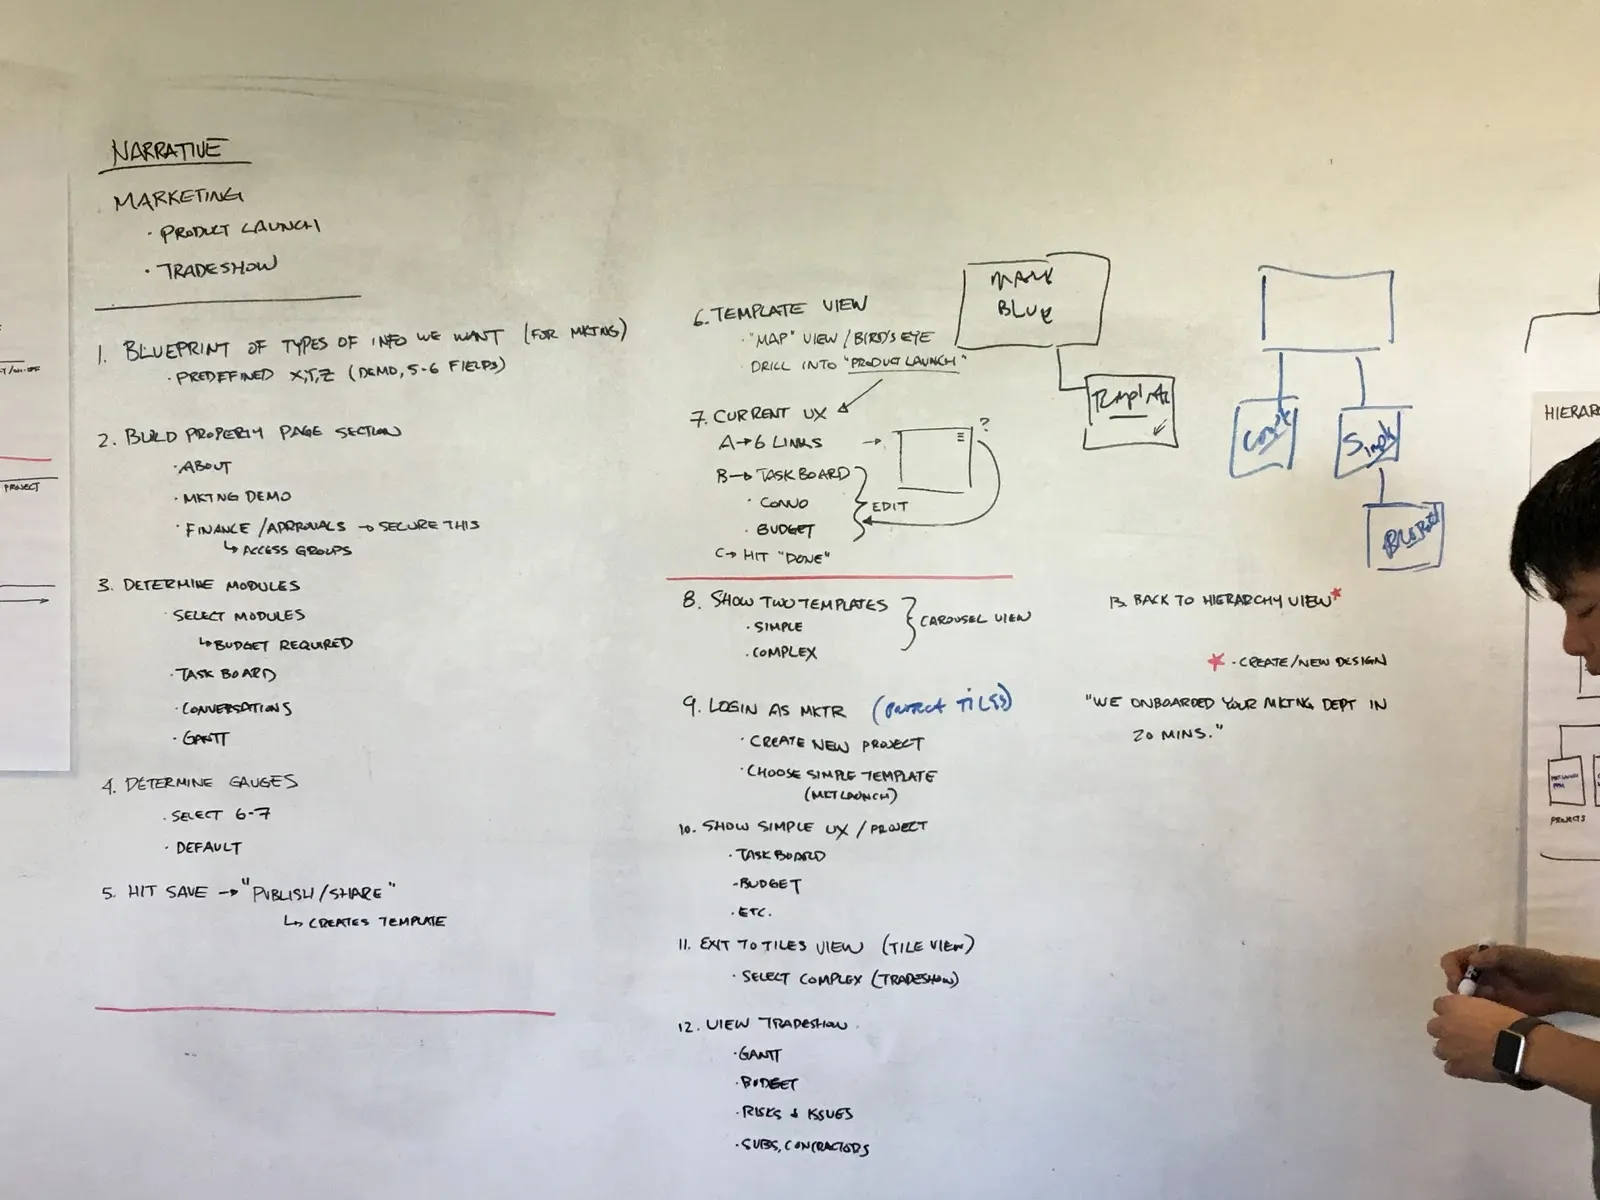 NARRATIVE
MARKETING
· PRODUCT LAUNCH
· TRADESHOW
1. BLUEPRINT OF TYPES OF INFO WE WANT (FOR MKTNG)
· PREDEFINED X,Y,Z (DEMO, 5-6 FIELDS)
2. BUILD PROPERTY PAGE SECTION
· ABOUT
· MKTNG DEMO
· FINANCE/APPROVALS → SECURE THIS
↳ ACCESS GROUPS
3. DETERMINE MODULES
· SELECT MODULES
↳ BUDGET REQUIRED
· TASK BOARD
· CONVERSATIONS
· GANTT
4. DETERMINE GAUGES
· SELECT 6-7
· DEFAULT
5. HIT SAVE → "PUBLISH/SHARE"
↳ CREATES TEMPLATE
6. TEMPLATE VIEW
· "MAP" VIEW / BIRD'S EYE
DRILL INTO "PRODUCT LAUNCH"
7. CURRENT UX
A → 6 LINKS →
?
B → TASK BOARD
· CONVO
· BUDGET
EDIT
C → HIT "DONE"
8. SHOW TWO TEMPLATES
· SIMPLE
· COMPLEX
CAROUSEL VIEW
9. LOGIN AS MKTR (PROJECT TILES)
· CREATE NEW PROJECT
· CHOOSE SIMPLE TEMPLATE
(MKT LAUNCH)
10. SHOW SIMPLE UX / PROJECT
· TASK BOARD
· BUDGET
· ETC.
11. EXIT TO TILES VIEW (TILE VIEW)
· SELECT COMPLEX (TRADESHOW)
12. VIEW TRADESHOW
· GANTT
· BUDGET
· RISKS & ISSUES
· SUBS, CONTRACTORS
MARK
BLUE
TEMPLATE
Simple
13. BACK TO HIERARCHY VIEW*
* · CREATE/NEW DESIGN
"WE ONBOARDED YOUR MKTNG DEPT IN
20 MINS."
PROJECT
HIERAR
PROJECTS